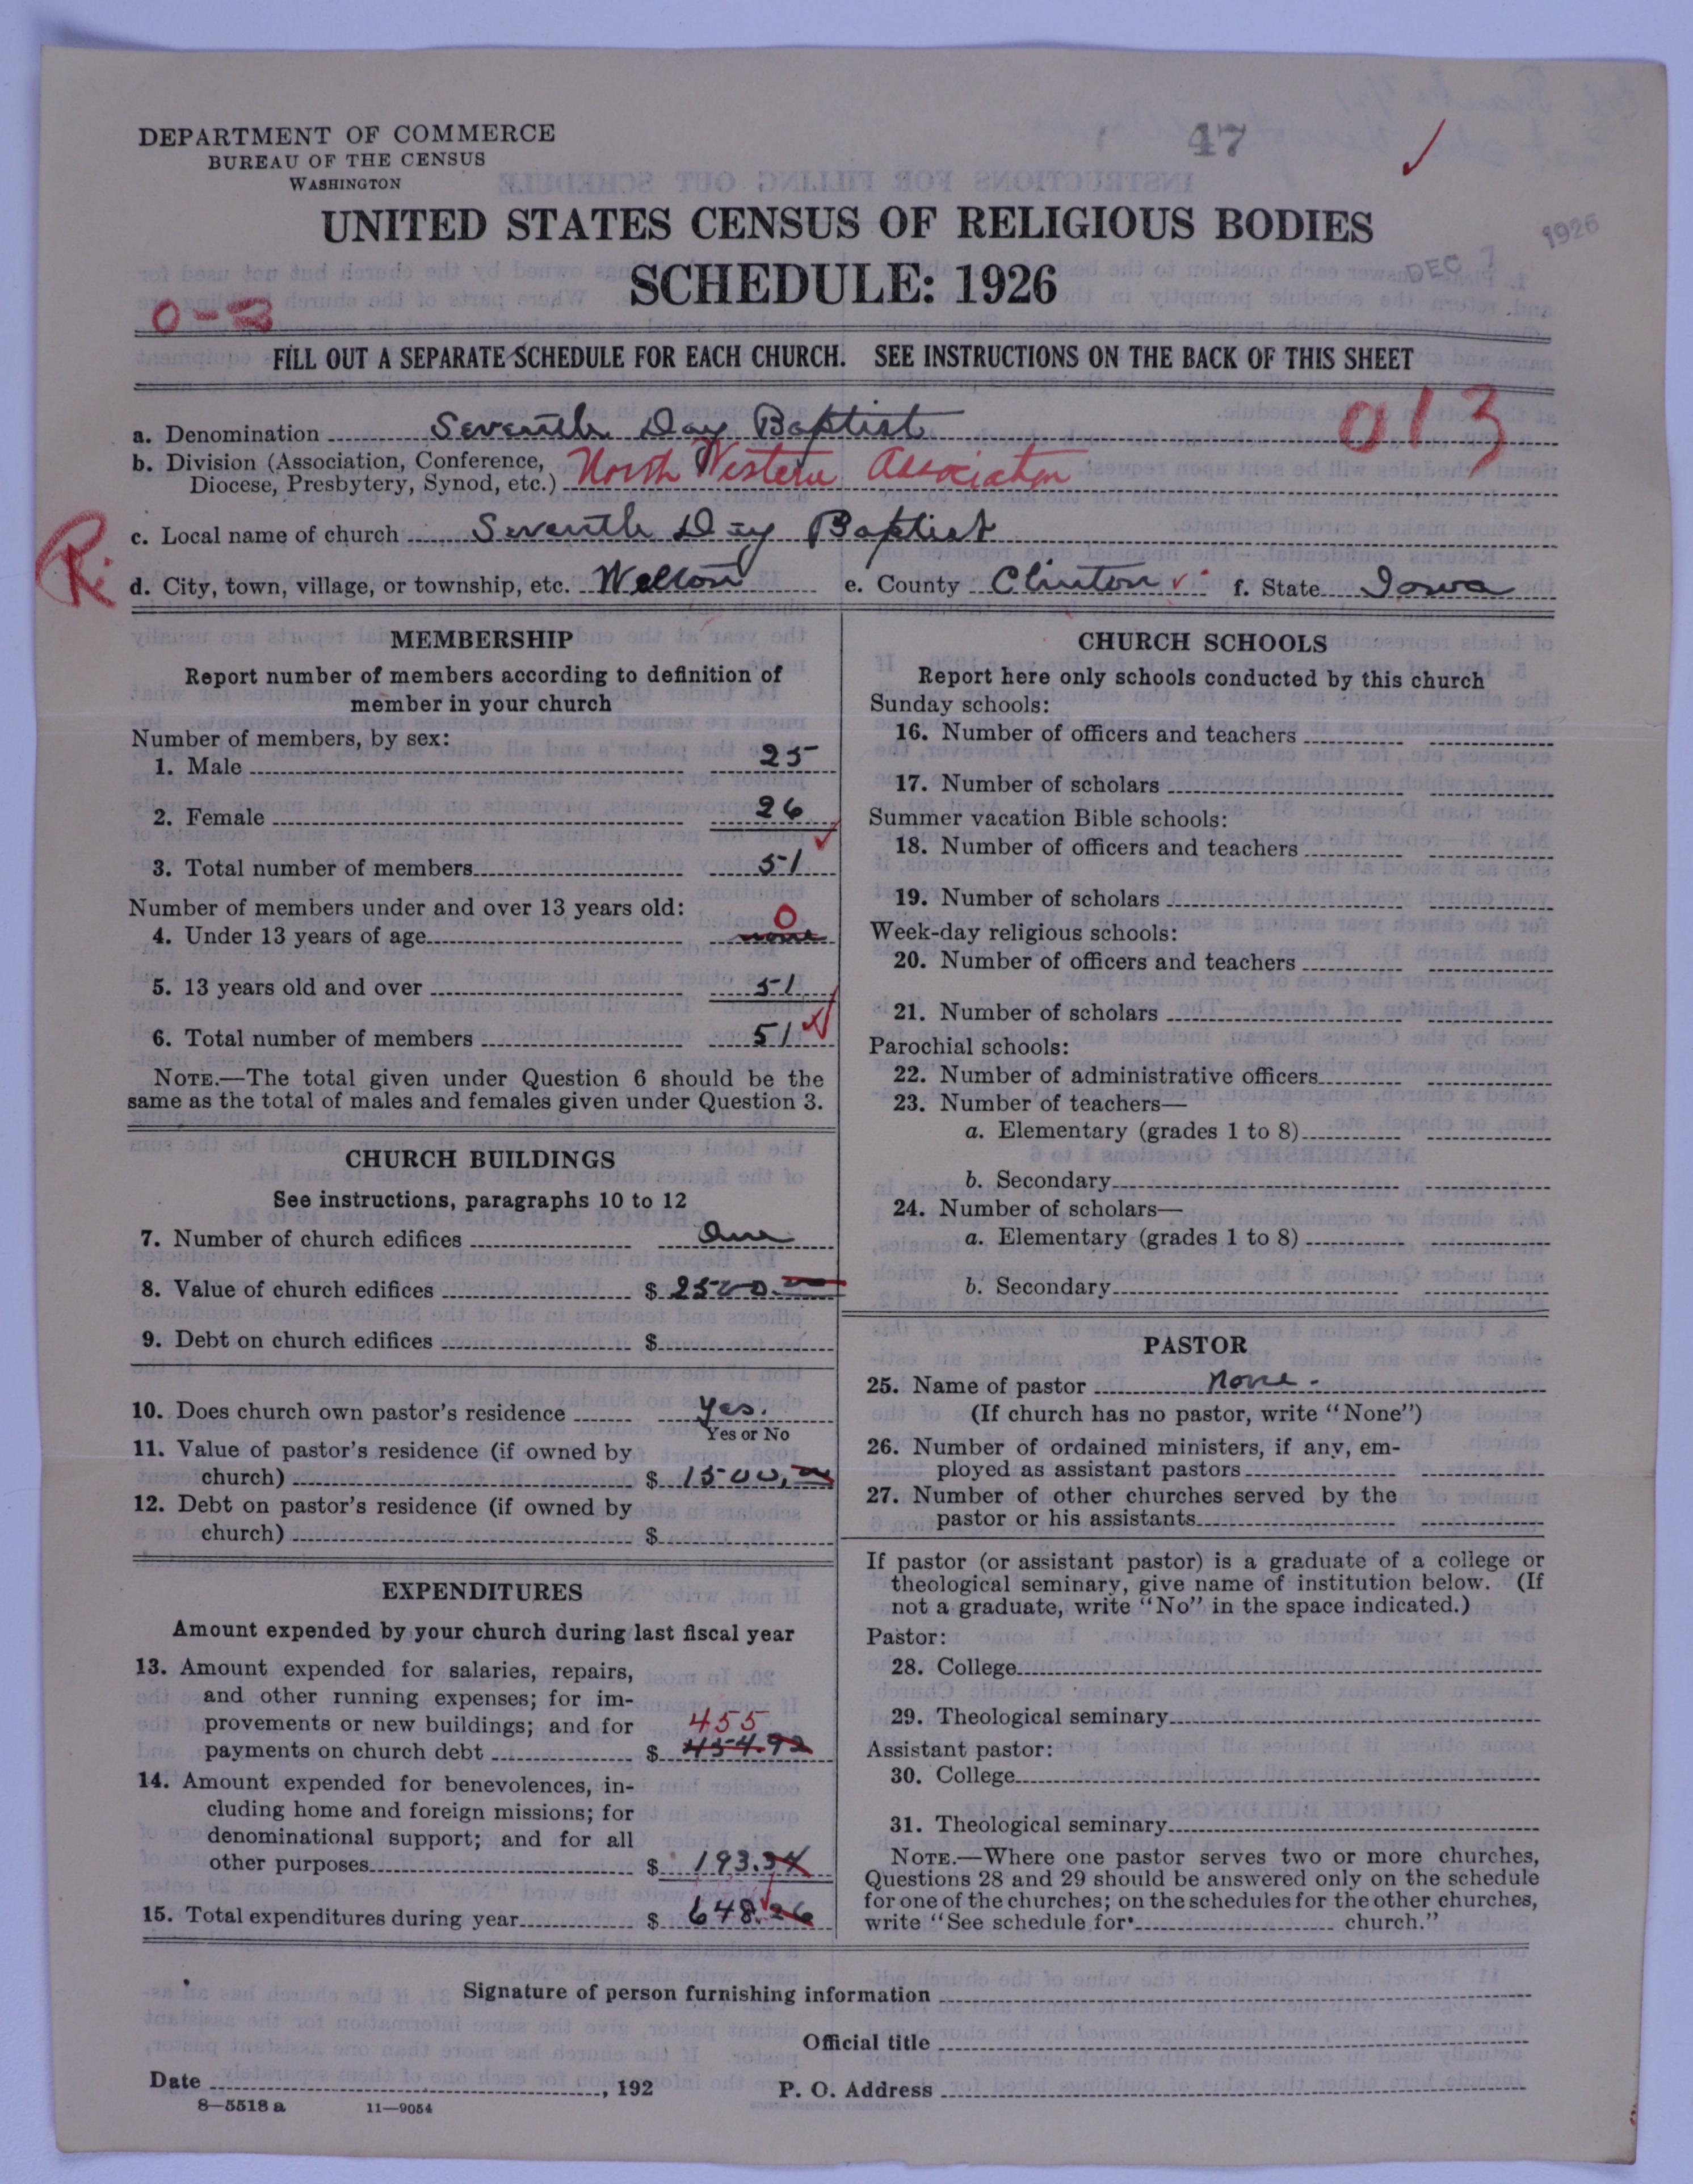 DEPARTMENT OF COMMERCE
BUREAU OF THE CENSUS
WASHINGTON
47
UNITED STATES CENSUS OF RELIGIOUS BODIES
SCHEDULE: 1926
DEC 7 1926
FILL OUT A SEPARATE SCHEDULE FOR EACH CHURCH. SEE INSTRUCTIONS ON THE BACK OF THIS SHEET
013
a. Denomination Seventh Day Baptist
b. Division (Association, Conference, Diocese, Presbytery, Synod, etc.) North Western Association
c. Local name of church Seventh Day Baptist
R.
d. City, town, village, or township, etc. Welton e. County Clinton f. State Iowa
MEMBERSHIP
Report number of members according to definition of
member in your church
Number of members, by sex:
1. Male 25
2. Female 26
3. Total number of members 51
Number of members under and over 13 years old:
0
4. Under 13 years of age none
5. 13 years old and over 51
6. Total number of members 51
NOTE.—The total given under Question 6 should be the
same as the total of males and females given under Question 3.
CHURCH BUILDINGS
See instructions, paragraphs 10 to 12
7. Number of church edifices One
8. Value of church edifices $ 2500.
9. Debt on church edifices $
10. Does church own pastor's residence Yes.
Yes or No
11. Value of pastor's residence (if owned by
church) $ 1500.
12. Debt on pastor's residence (if owned by
church) $
EXPENDITURES
Amount expended by your church during last fiscal year
13. Amount expended for salaries, repairs,
and other running expenses; for im-
provements or new buildings; and for 455
payments on church debt $ 454.92
14. Amount expended for benevolences, in-
cluding home and foreign missions; for
denominational support; and for all
other purposes $ 193.34
15. Total expenditures during year $ 648.26
CHURCH SCHOOLS
Report here only schools conducted by this church
Sunday schools:
16. Number of officers and teachers
17. Number of scholars
Summer vacation Bible schools:
18. Number of officers and teachers
19. Number of scholars
Week-day religious schools:
20. Number of officers and teachers
21. Number of scholars
Parochial schools:
22. Number of administrative officers
23. Number of teachers—
a. Elementary (grades 1 to 8)
b. Secondary
24. Number of scholars—
a. Elementary (grades 1 to 8)
b. Secondary
PASTOR
25. Name of pastor None.
(If church has no pastor, write "None")
26. Number of ordained ministers, if any, em-
ployed as assistant pastors
27. Number of other churches served by the
pastor or his assistants
If pastor (or assistant pastor) is a graduate of a college or
theological seminary, give name of institution below. (If
not a graduate, write "No" in the space indicated.)
Pastor:
28. College
29. Theological seminary
Assistant pastor:
30. College
31. Theological seminary
NOTE.—Where one pastor serves two or more churches,
Questions 28 and 29 should be answered only on the schedule
for one of the churches; on the schedules for the other churches,
write "See schedule for church."
Signature of person furnishing information
Official title
Date , 192 P. O. Address
8—5518 a 11—9054